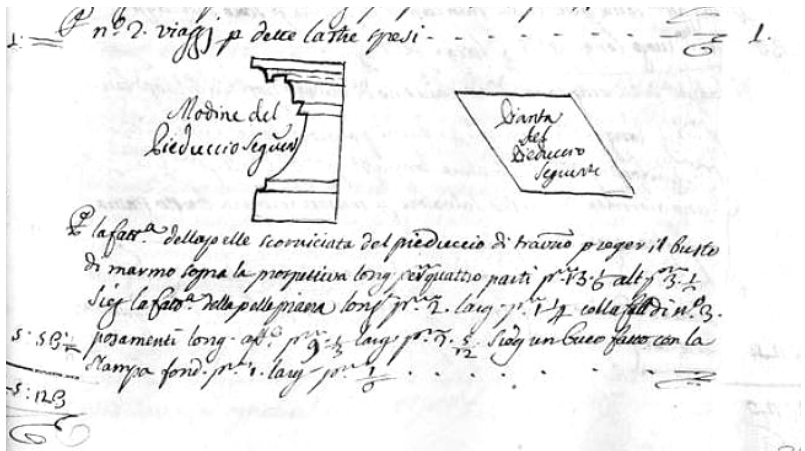 1. P n.º 2. viaggi p dette lastre spesi - - - - - 1.
Modine del
Pieduccio Seguen
Pianta
del
Pieduccio
Seguente
P la fatt.ª della pelle scorniciata del pieduccio di p reger il busto
di marmo sopra la prospettiva long. quattro parti p.mi 13 1/6 alt p.mi 3 1/2
Sieg la fatt.ª della pelle piana long p.mi 2. larg. p.mi 1 1/4 colla di n.º 3.
posamenti long. p.mi 9 1/3 larg p.mi 5/12 Sieg un buco fatto con la
Stampa fond. p.mi 1. larg p.mi 1/6 - - - - -
5: 5B
5: 12B